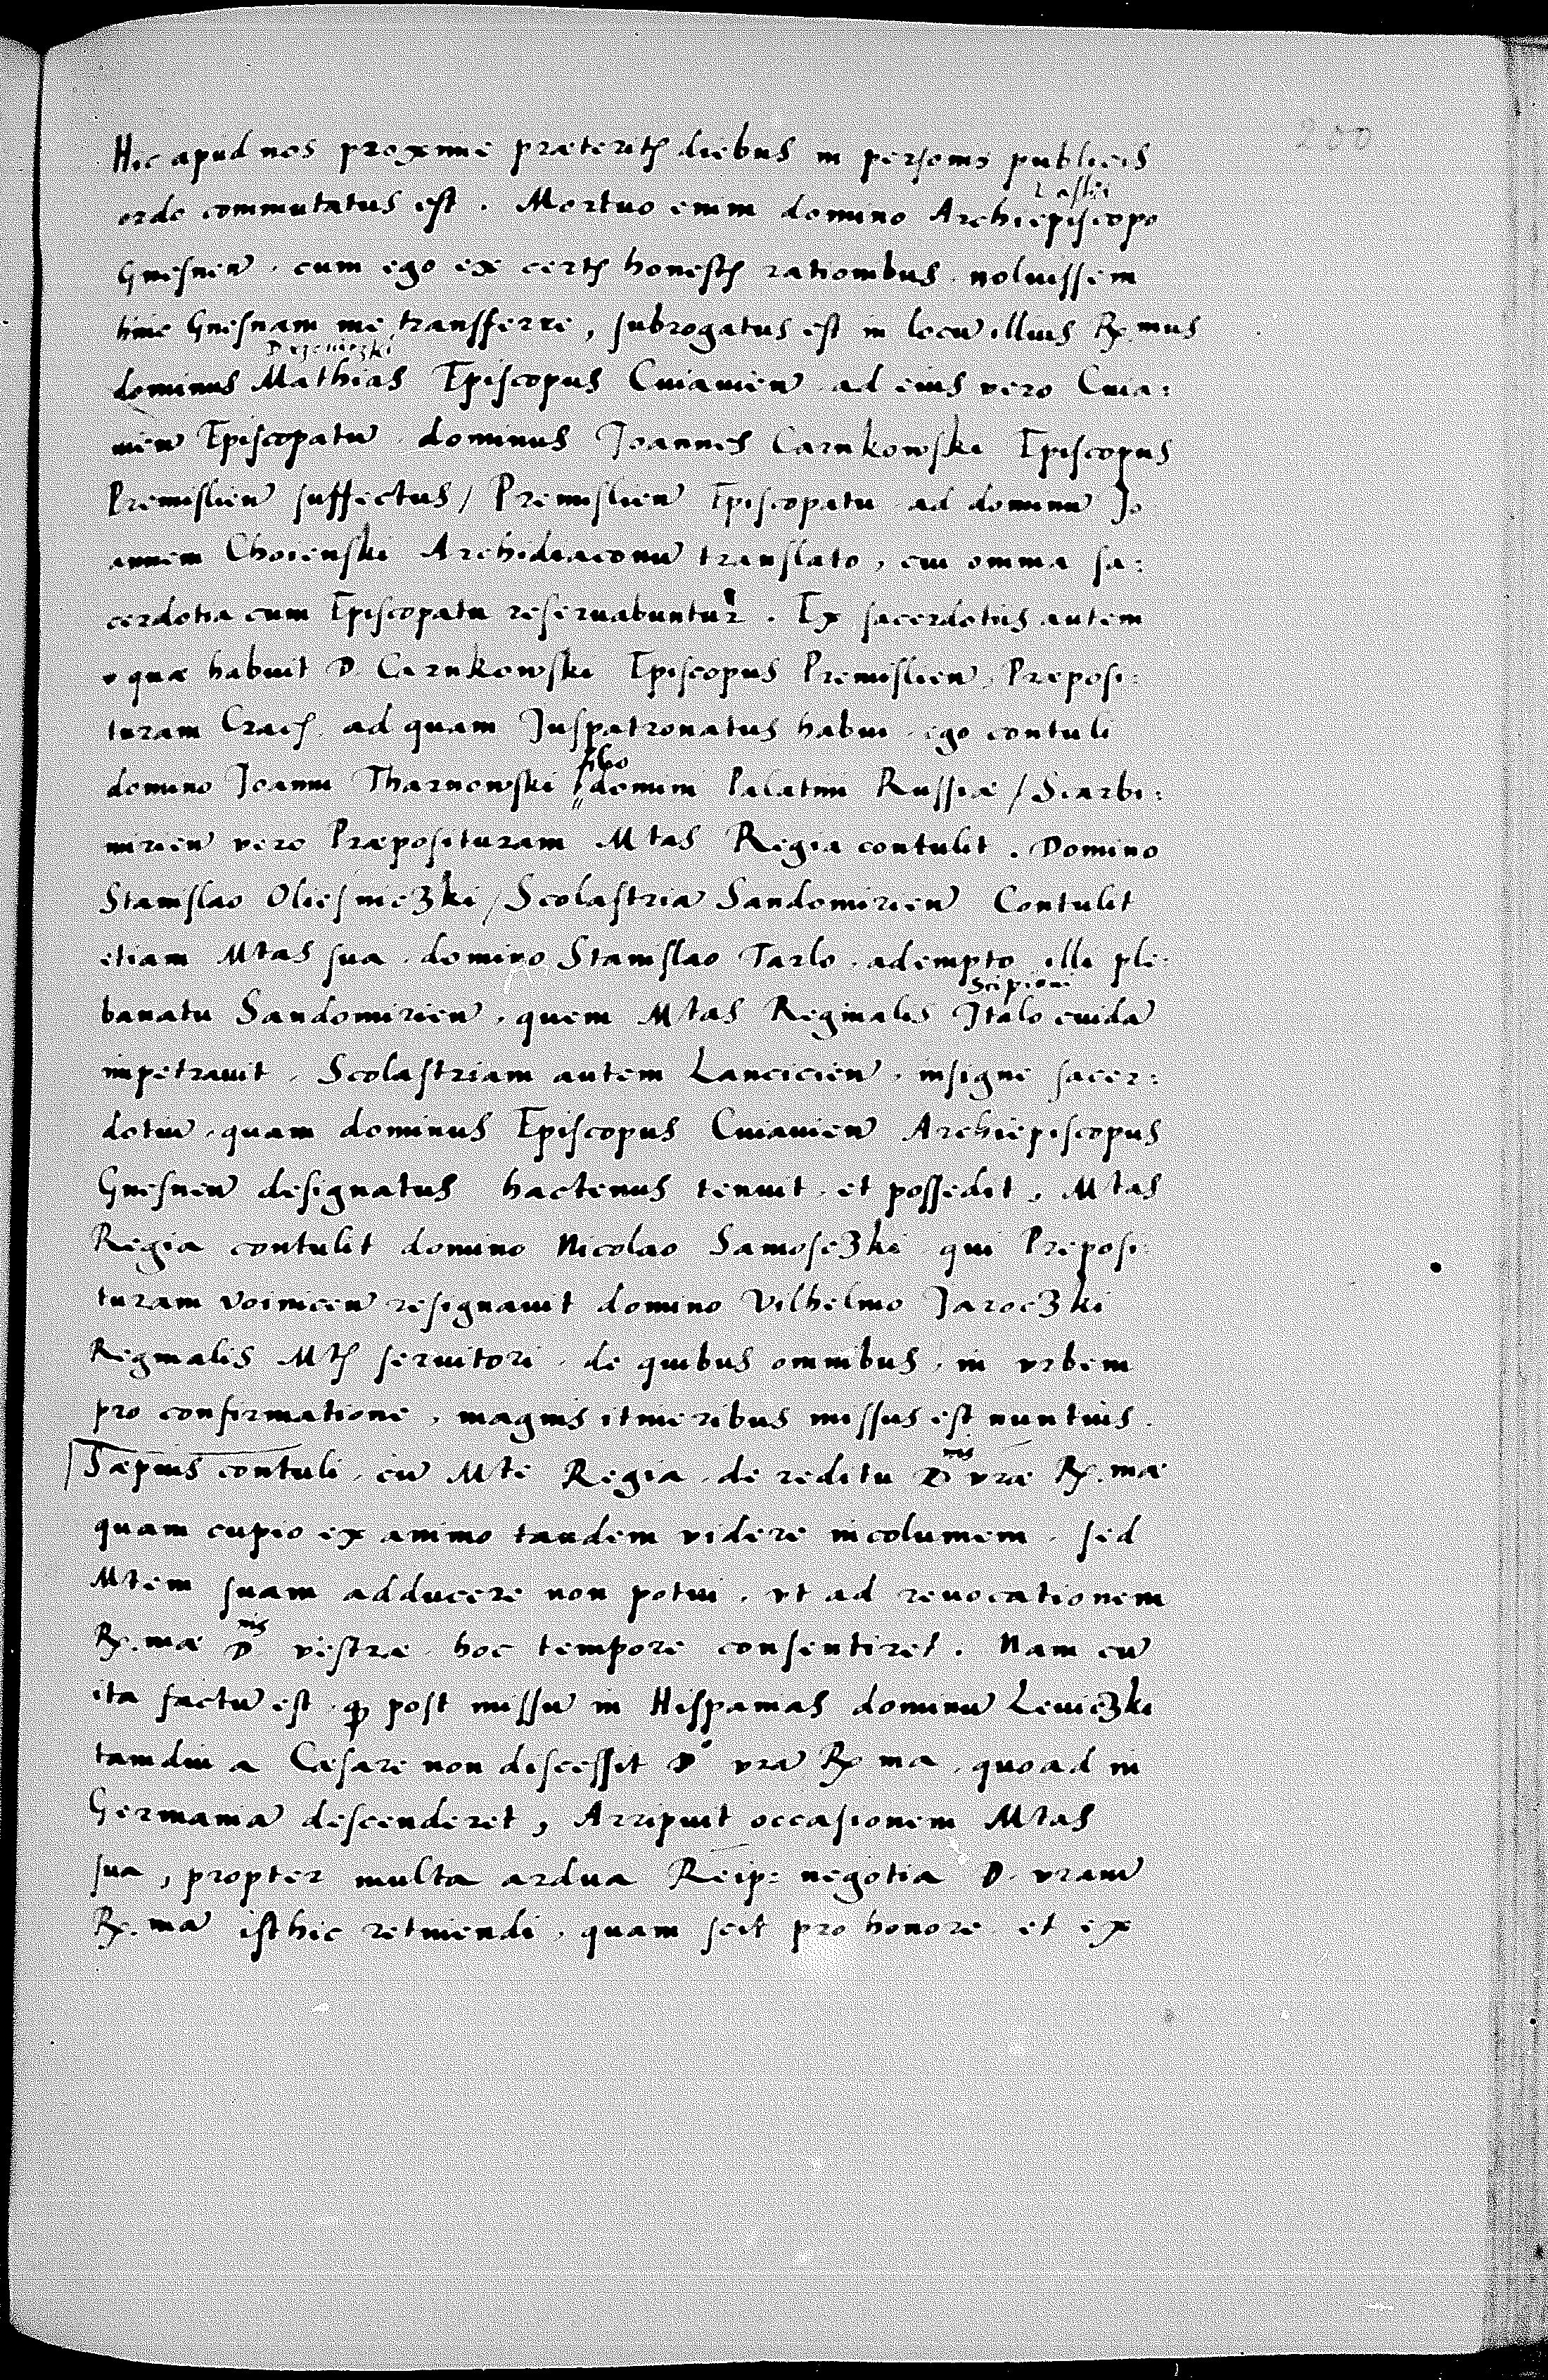 200
Hic apud nos proxime præteritis diebus in personis publicis
ordo commutatus est. Mortuo enim domino Archiepiscopo
Gnesnen̄. cum ego ex certis honestis rationibus noluissem
hinc Gnesnam me transferre, subrogatus est in locū illius R. mus
Drzeviczki
dominus Mathias Episcopus Cuiavien̄ ad eius vero Cuia:
vien̄ Episcopatū dominus Joannes Carnkowski Episcopus
Premislien̄ suffectus / Premislien̄ Episcopatu ad dominū Jo
annem Choienski Archidiaconū translato, cui omnia sa:
cerdotia cum Episcopatu reservabuntur. Ex sacerdotiis autem
quæ habuit D. Carnkowski Episcopus Premislien̄, Præposi:
turam Crac. ad quam Juspatronatus habui ego contuli
filio
domino Joanni Tharnowski domini Palatini Russiæ / Scarbi:
mirien̄ vero Præposituram Mtas Regia contulit. Domino
Stanislao Oliesniczki / Scolastriā Sandomirien̄ Contulit
etiam Mtas sua domino Stanislao Tarlo adempto illi ple:
Scipioni
banatu Sandomirien̄, quem Mtas Reginalis Italo cuidā
impetravit. Scolastriam autem Lancicien̄, insigne sacer:
dotiū, quam dominus Episcopus Cuiavien̄ Archiepiscopus
Gnesnen̄ designatus hactenus tenuit et possedit, Mtas
Regia contulit domino Nicolao Samoseczki qui Preposi:
turam Voinicen̄ resignavit domino Vilhelmo Jaroczki
Reginalis Mtis servitori. de quibus omnibus, in vrbem
pro confirmatione, magnis itineribus missus est nuntius.
Sæpius contuli cū Mte Regia de reditu Dnis vræ R. mæ
quam cupio ex animo tandem videre incolumem. sed
Mtem suam adducere non potui, vt ad revocationem
R. mæ Dnis vestræ hoc tempore consentiret. Nam cū
ita factū est qꝫ post missū in Hispanias dominū Leviczki
tamdiu a Cæsare non discessit Do vrā R ma, quoad in
Germaniā descenderet, Arripuit occasionem Mtas
sua, propter multa ardua Reip: negotia D. vram̄
R. mā isthic retinendi, quam scit pro honore et ex